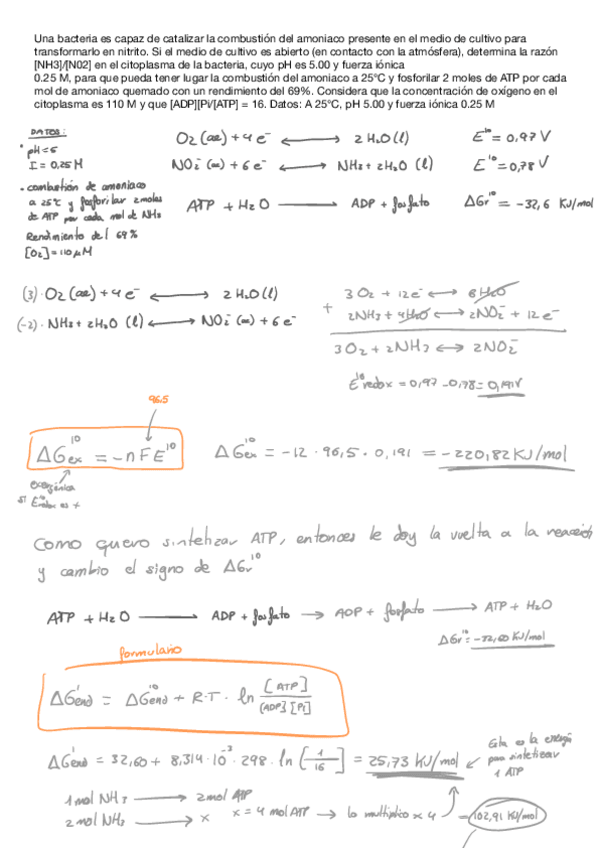 Una bacteria es capaz de catalizar la combustión del amoniaco presente en el medio de cultivo para
transformarlo en nitrito. Si el medio de cultivo es abierto (en contacto con la atmósfera), determina la razón
[NH3]/[N02] en el citoplasma de la bacteria, cuyo pH es 5.00 y fuerza iónica
0.25 M, para que pueda tener lugar la combustión del amoniaco a 25°C y fosforilar 2 moles de ATP por cada
mol de amoniaco quemado con un rendimiento del 69%. Considera que la concentración de oxígeno en el
citoplasma es 110 M y que [ADP][Pi/[ATP] = 16. Datos: A 25°C, pH 5.00 y fuerza iónica 0.25 M
DATOS:
• pH=5
I = 0,25 M
• combustión de amoniaco
a 25°C y fosforilar 2 moles
de ATP por cada mol de NH3
Rendimiento del 69%
[O2] = 110 μM
O2 (ac) + 4 e⁻ ⟷ 2 H2O (l) E'° = 0,97 V
NO2⁻ (ac) + 6 e⁻ ⟷ NH3 + 2H2O (l) E'° = 0,78 V
ATP + H2O ⟶ ADP + fosfato ΔGr'° = -32,6 KJ/mol
(3)· O2 (ac) + 4 e⁻ ⟷ 2 H2O (l)
(-2)· NH3 + 2H2O (l) ⟷ NO2⁻ (ac) + 6 e⁻
3 O2 + 12 e⁻ ⟷ 6 H2O
+ 2NH3 + 4H2O ⟷ 2NO2⁻ + 12 e⁻
3 O2 + 2NH3 ⟷ 2NO2⁻
E'°redox = 0,97 - 0,78 = 0,191 V
96,5
ΔGex'° = -nFE'°
ΔGex'° = -12 · 96,5 · 0,191 = -220,82 KJ/mol
exergónica
si E'°redox es +
Como quiero sintetizar ATP, entonces le doy la vuelta a la reacción
y cambio el signo de ΔGr'°
ATP + H2O ⟶ ADP + fosfato → ADP + fosfato ⟶ ATP + H2O
ΔGr'° = -32,60 KJ/mol
formulario
ΔG'end = ΔG'°end + R·T · ln [ATP]/[ADP][Pi]
ΔG'end = 32,60 + 8,314·10⁻³ · 298 · ln [1/16] = 25,73 KJ/mol
Esta es la energía
para sintetizar
1 ATP
1 mol NH3 ⟶ 2 mol ATP
2 mol NH3 ⟶ x x = 4 mol ATP → lo multiplico x 4 = 102,91 KJ/mol